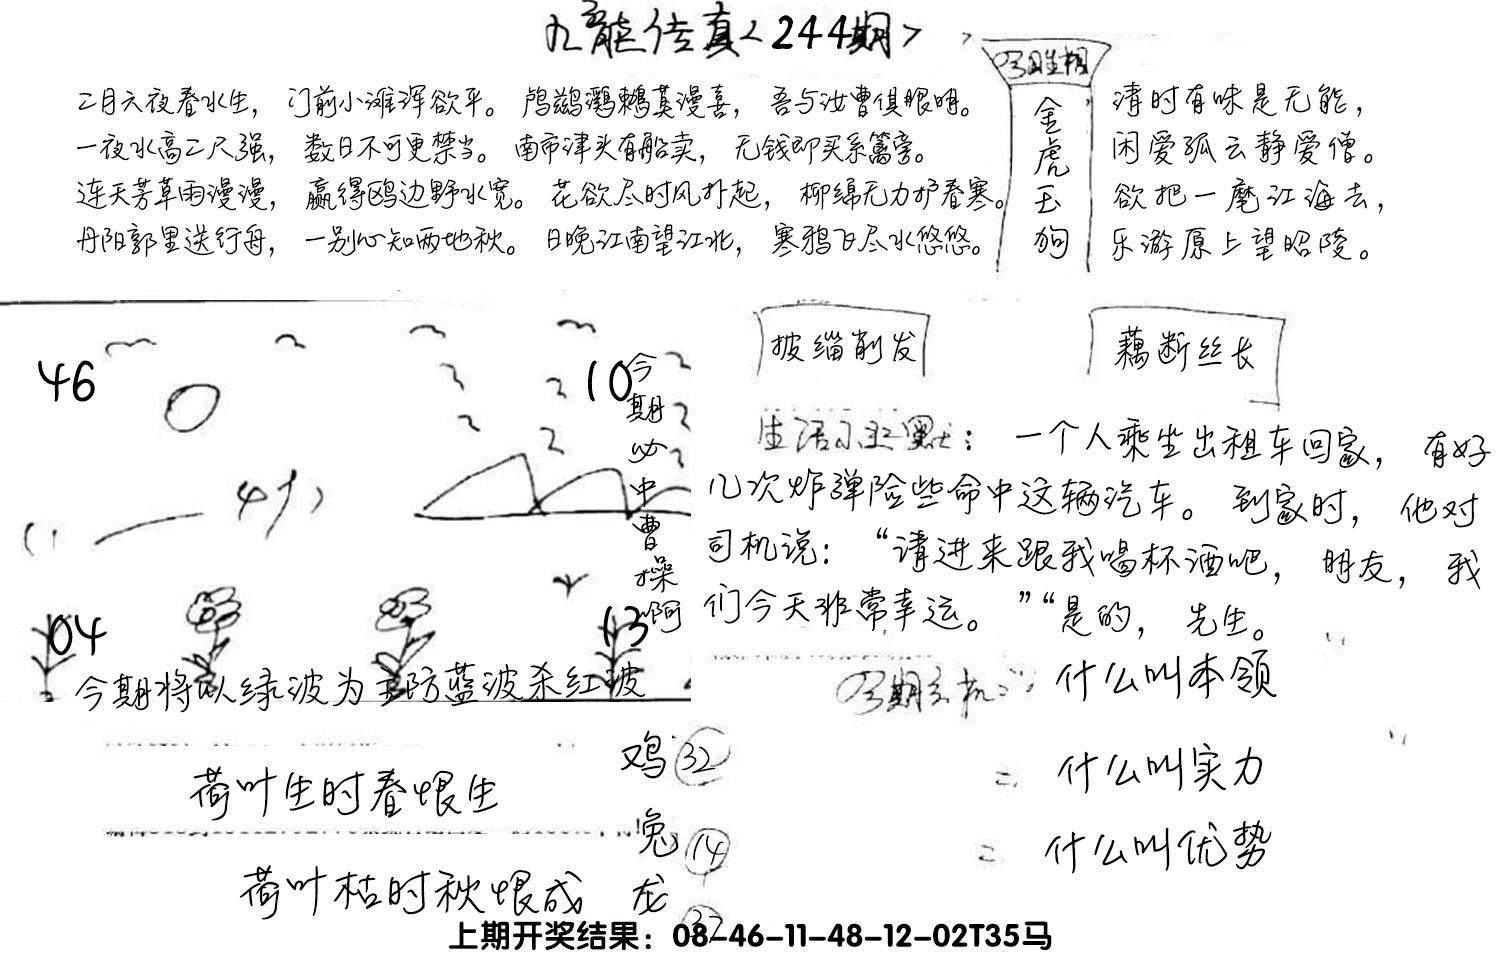 九龙传真<244期>
二月六夜春水生，门前小滩浑欲平。鸬鹚鸂鶒莫漫喜，吾与汝曹俱眼明。
一夜水高二尺强，数日不可更禁当。南市津头有船卖，无钱即买系篱旁。
连天芳草雨漫漫，赢得鸥边野水宽。花欲尽时风扑起，柳绵无力护春寒。
丹阳郭里送行舟，一别心知两地秋。日晚江南望江北，寒鸦飞尽水悠悠。
金虎玉狗
清时有味是无能，
闲爱孤云静爱僧。
欲把一麾江海去，
乐游原上望昭陵。
46
10
今期必中曹操啊
04
13
今期将以绿波为主防蓝波杀红波
披缁削发
藕断丝长
生活小幽默：一个人乘坐出租车回家，有好
几次炸弹险些命中这辆汽车。到家时，他对
司机说：“请进来跟我喝杯酒吧，朋友，我
们今天非常幸运。”“是的，先生。
今期玄机：什么叫本领
什么叫实力
什么叫优势
荷叶生时春恨生
荷叶枯时秋恨成
鸡 32
兔 14
龙 37
上期开奖结果：08-46-11-48-12-02T35马